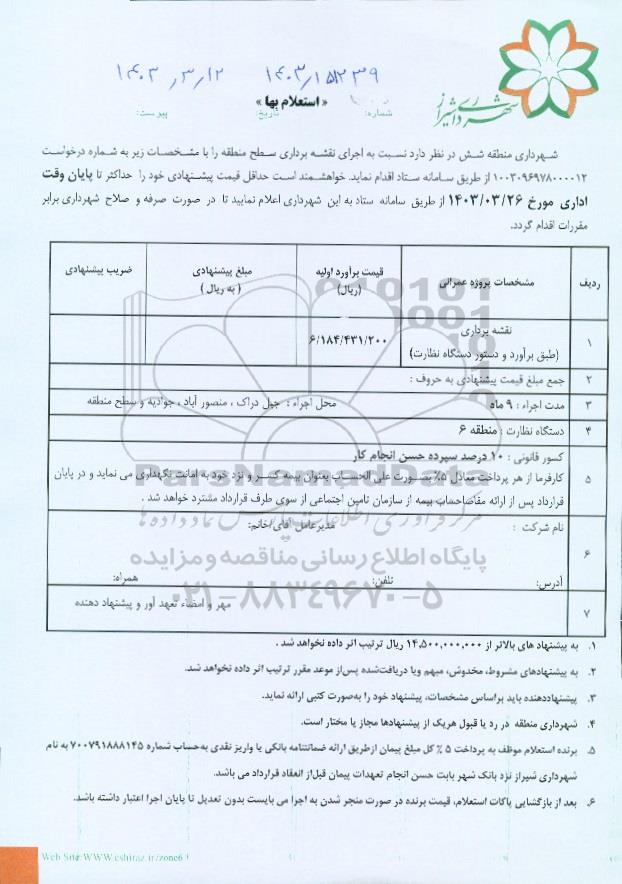 شهرداری شیراز
۱۴۰۳/۳/۱۲
« استعلام بها »
شماره:
تاریخ:
پیوست:
شهرداری منطقه شش در نظر دارد نسبت به اجرای نقشه برداری سطح منطقه را با مشخصات زیر به شماره درخواست
۱۰۰۳۰۹۶۹۷۸۰۰۰۰۱۲ از طریق سامانه ستاد اقدام نماید. خواهشمند است حداقل قیمت پیشنهادی خود را حداکثر تا پایان وقت
اداری مورخ ۱۴۰۳/۰۳/۲۶ از طریق سامانه ستاد به این شهرداری اعلام نمایید تا در صورت صرفه و صلاح شهرداری برابر
مقررات اقدام گردد.
ردیف
مشخصات پروژه عمرانی
قیمت برآورد اولیه
(ریال)
مبلغ پیشنهادی
( به ریال )
ضریب پیشنهادی
۱
نقشه برداری
(طبق برآورد و دستور دستگاه نظارت)
۶/۱۸۴/۴۳۱/۲۰۰
۲
جمع مبلغ قیمت پیشنهادی به حروف :
۳
مدت اجراء : ۹ ماه
محل اجراء : جبل دراک ، منصور آباد ، جوادیه و سطح منطقه
۴
دستگاه نظارت : منطقه ۶
۵
کسور قانونی : ۱۰ درصد سپرده حسن انجام کار
کارفرما از هر پرداخت معادل ۵% بصورت علی الحساب بعنوان بیمه کسر و نزد خود به امانت نگهداری می نماید و در پایان
قرارداد پس از ارائه مفاصاحساب بیمه از سازمان تامین اجتماعی از سوی طرف قرارداد مسترد خواهد شد .
۶
نام شرکت :
مدیرعامل آقای/خانم:
پایگاه اطلاع رسانی مناقصه و مزایده
آدرس:
تلفن:
همراه:
۰۲۱-۸۸۳۴۹۶۷۰-۵
۷
مهر و امضاء تعهد آور و پیشنهاد دهنده
۱. به پیشنهاد های بالاتر از ۱۴,۵۰۰,۰۰۰,۰۰۰ ریال ترتیب اثر داده نخواهد شد .
۲. به پیشنهادهای مشروط، مخدوش، مبهم ویا دریافت‌شده پس‌از موعد مقرر ترتیب اثر داده نخواهد شد.
۳. پیشنهاددهنده باید براساس مشخصات، پیشنهاد خود را به‌صورت کتبی ارائه نماید.
۴. شهرداری منطقه در رد یا قبول هریک از پیشنهادها مجاز یا مختار است.
۵. برنده استعلام موظف به پرداخت ۵ % کل مبلغ پیمان ازطریق ارائه ضمانتنامه بانکی یا واریز نقدی به‌حساب شماره ۷۰۰۷۹۱۸۸۸۱۴۵ به نام
شهرداری شیراز نزد بانک شهر بابت حسن انجام تعهدات پیمان قبل‌از انعقاد قرارداد می باشد.
۶. بعد از بازگشایی پاکات استعلام، قیمت برنده در صورت منجر شدن به اجرا می بایست بدون تعدیل تا پایان اجرا اعتبار داشته باشد.
Web Site:WWW.eshiraz.ir/zone6